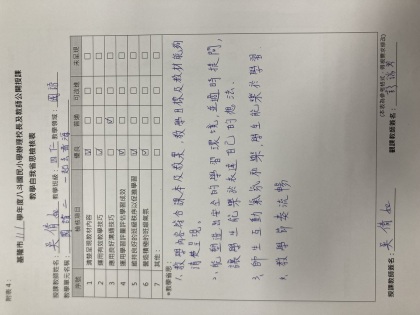 附表 4：
基隆市 111 學年度八斗國民小學辦理校長及教師公開授課
教學自我省思檢核表
授課教師姓名：吳倩 教學班級：四下 教學領域：國語
教學單元名稱：閱讀二 一起去看海
序號 檢核項目 優良 普通 可改進 未呈現
1 清楚呈現教材內容 ☑ □ □ □
2 運用有效教學技巧 ☑ □ □ □
3 應用良好溝通技巧 □ ☑ □ □
4 運用學習評量評估學習成效 ☑ □ □ □
5 維持良好的班級秩序以促進學習 ☑ □ □ □
6 營造積極的班級氣氛 ☑ □ □ □
7 其他：
*教學省思：
1. 教學內容符合課本及教案，教學目標及教材能夠
清楚呈現。
2. 能塑造出安全的學習環境，並適時提問，
讓學生能樂於表達自己的想法。
3. 師生互動氣氛和樂，學生能樂於學習
4. 教學節奏流暢
(本表為參考格式，得視需求修改)
授課教師簽名：吳倩 觀課教師簽名：